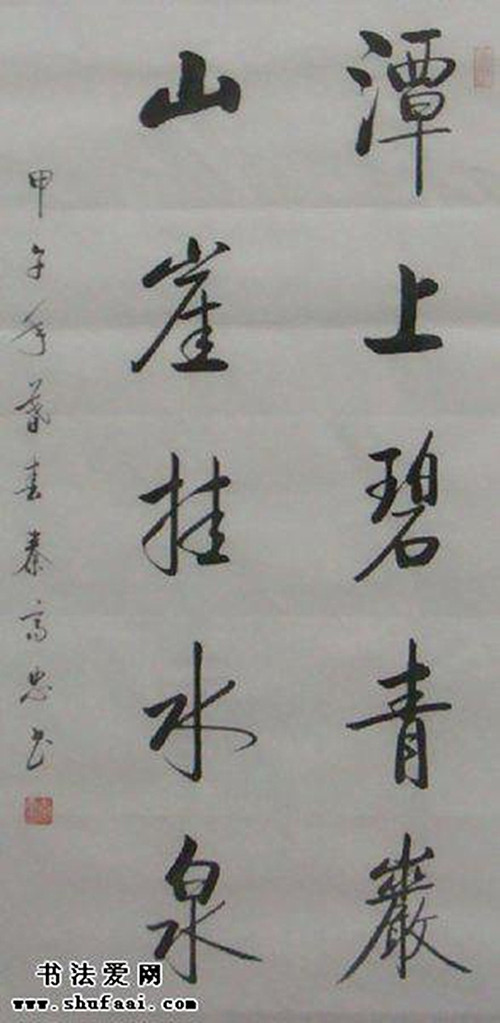 潭上碧青巖
山崖挂水泉
甲午年暮春秦高忠书
书法爱网
www.shufaai.com